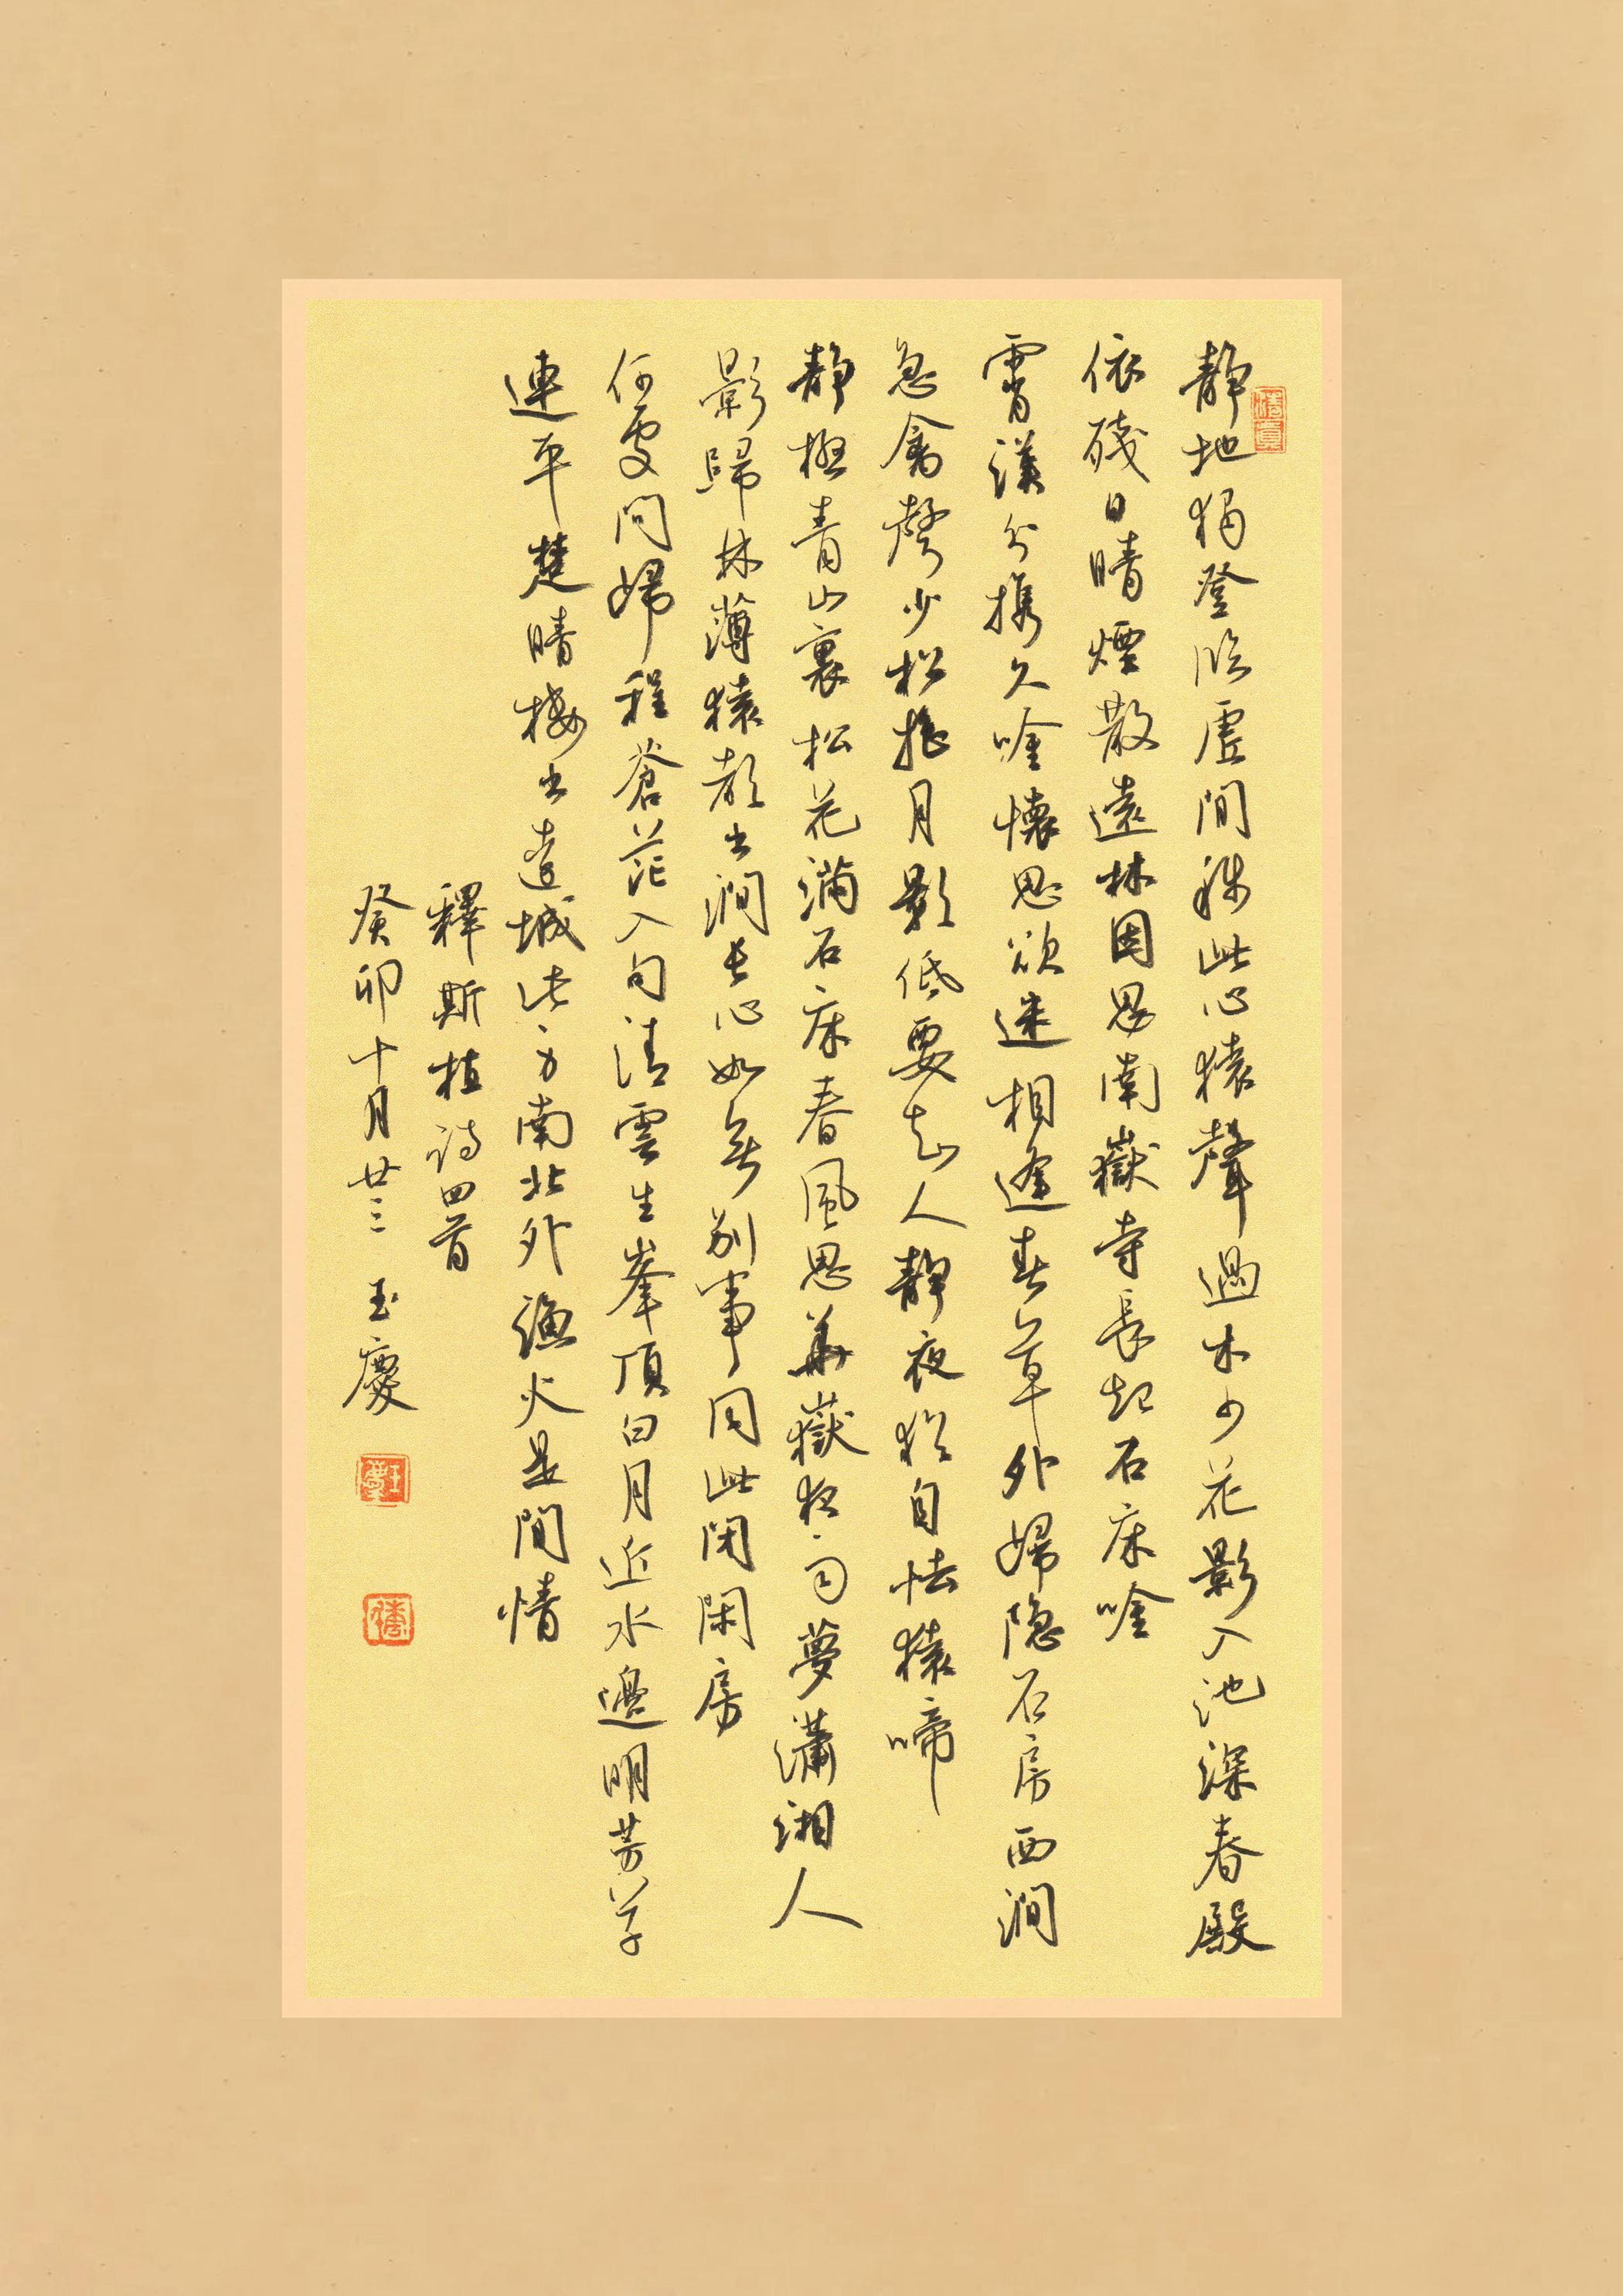 靜地獨登臨虛閒稱此心猿聲過木少花影入池深春殿
依殘日晴煙散遠林因思南嶽寺長起石床吟
霄漢分攜久吟懷思欲迷相逢春草外歸隱石房西澗
急禽聲少松搖月影低要知人靜夜猶自怯猿啼
靜極青山裏松花滿石床春風思華嶽夜雨夢瀟湘人
影歸林薄猿聲出澗長心如無別事同此閉閑房
何處問歸程蒼茫入句清雲生峯頂白月近水邊明芳草
連平楚晴樓出遠城此方南北外漁火是閒情
釋斯植詩四首
癸卯十月廿三 玉慶